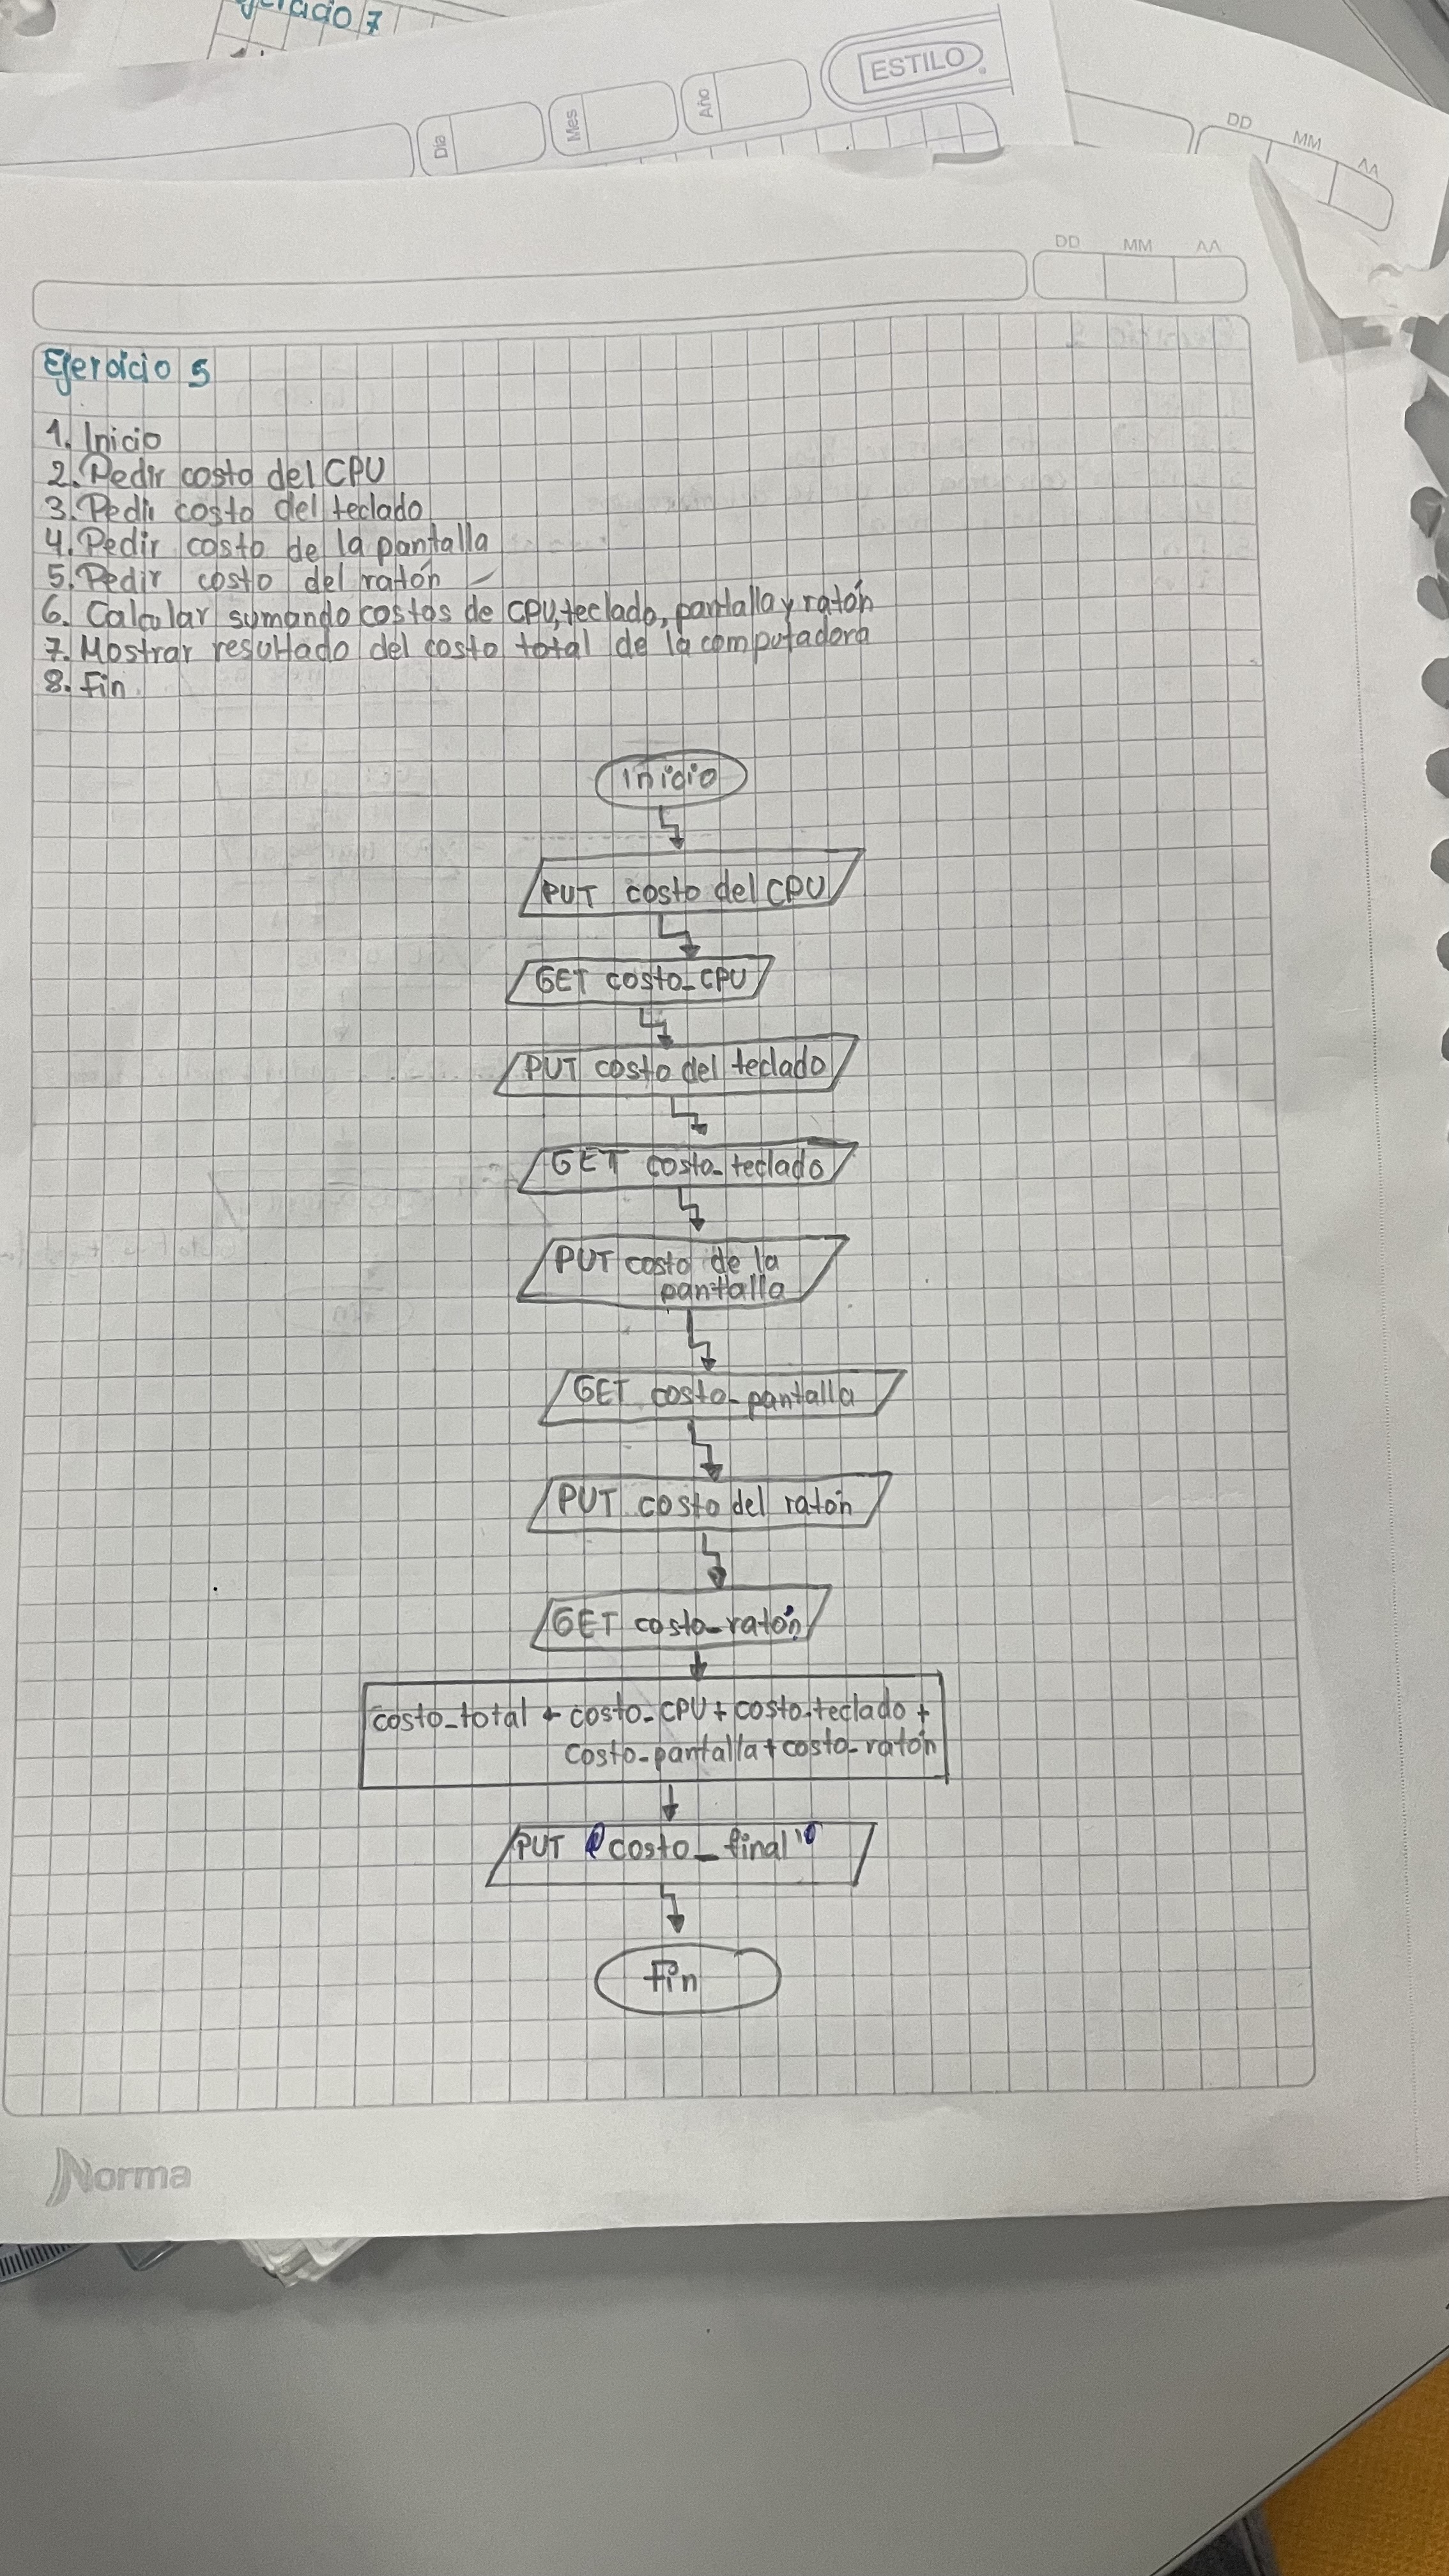 Ejercicio 7
Día
Mes
Año
ESTILO
DD
MM
AA
DD
MM
AA
Ejercicio 5
1. Inicio
2. Pedir costo del CPU
3. Pedir costo del teclado
4. Pedir costo de la pantalla
5. Pedir costo del ratón
6. Calcular sumando costos de CPU, teclado, pantalla y ratón
7. Mostrar resultado del costo total de la computadora
8. Fin
Inicio
PUT costo del CPU
GET costo_CPU
PUT costo del teclado
GET costo_teclado
PUT costo de la
pantalla
GET costo_pantalla
PUT costo del ratón
GET costo_ratón
costo_total ← costo_CPU + costo_teclado +
costo_pantalla + costo_ratón
PUT "costo_final"
Fin
Norma